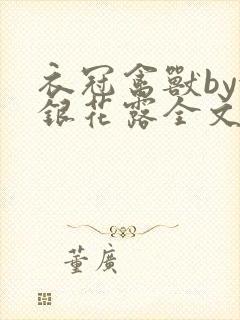 衣冠禽獸by
銀花露全文
董廣